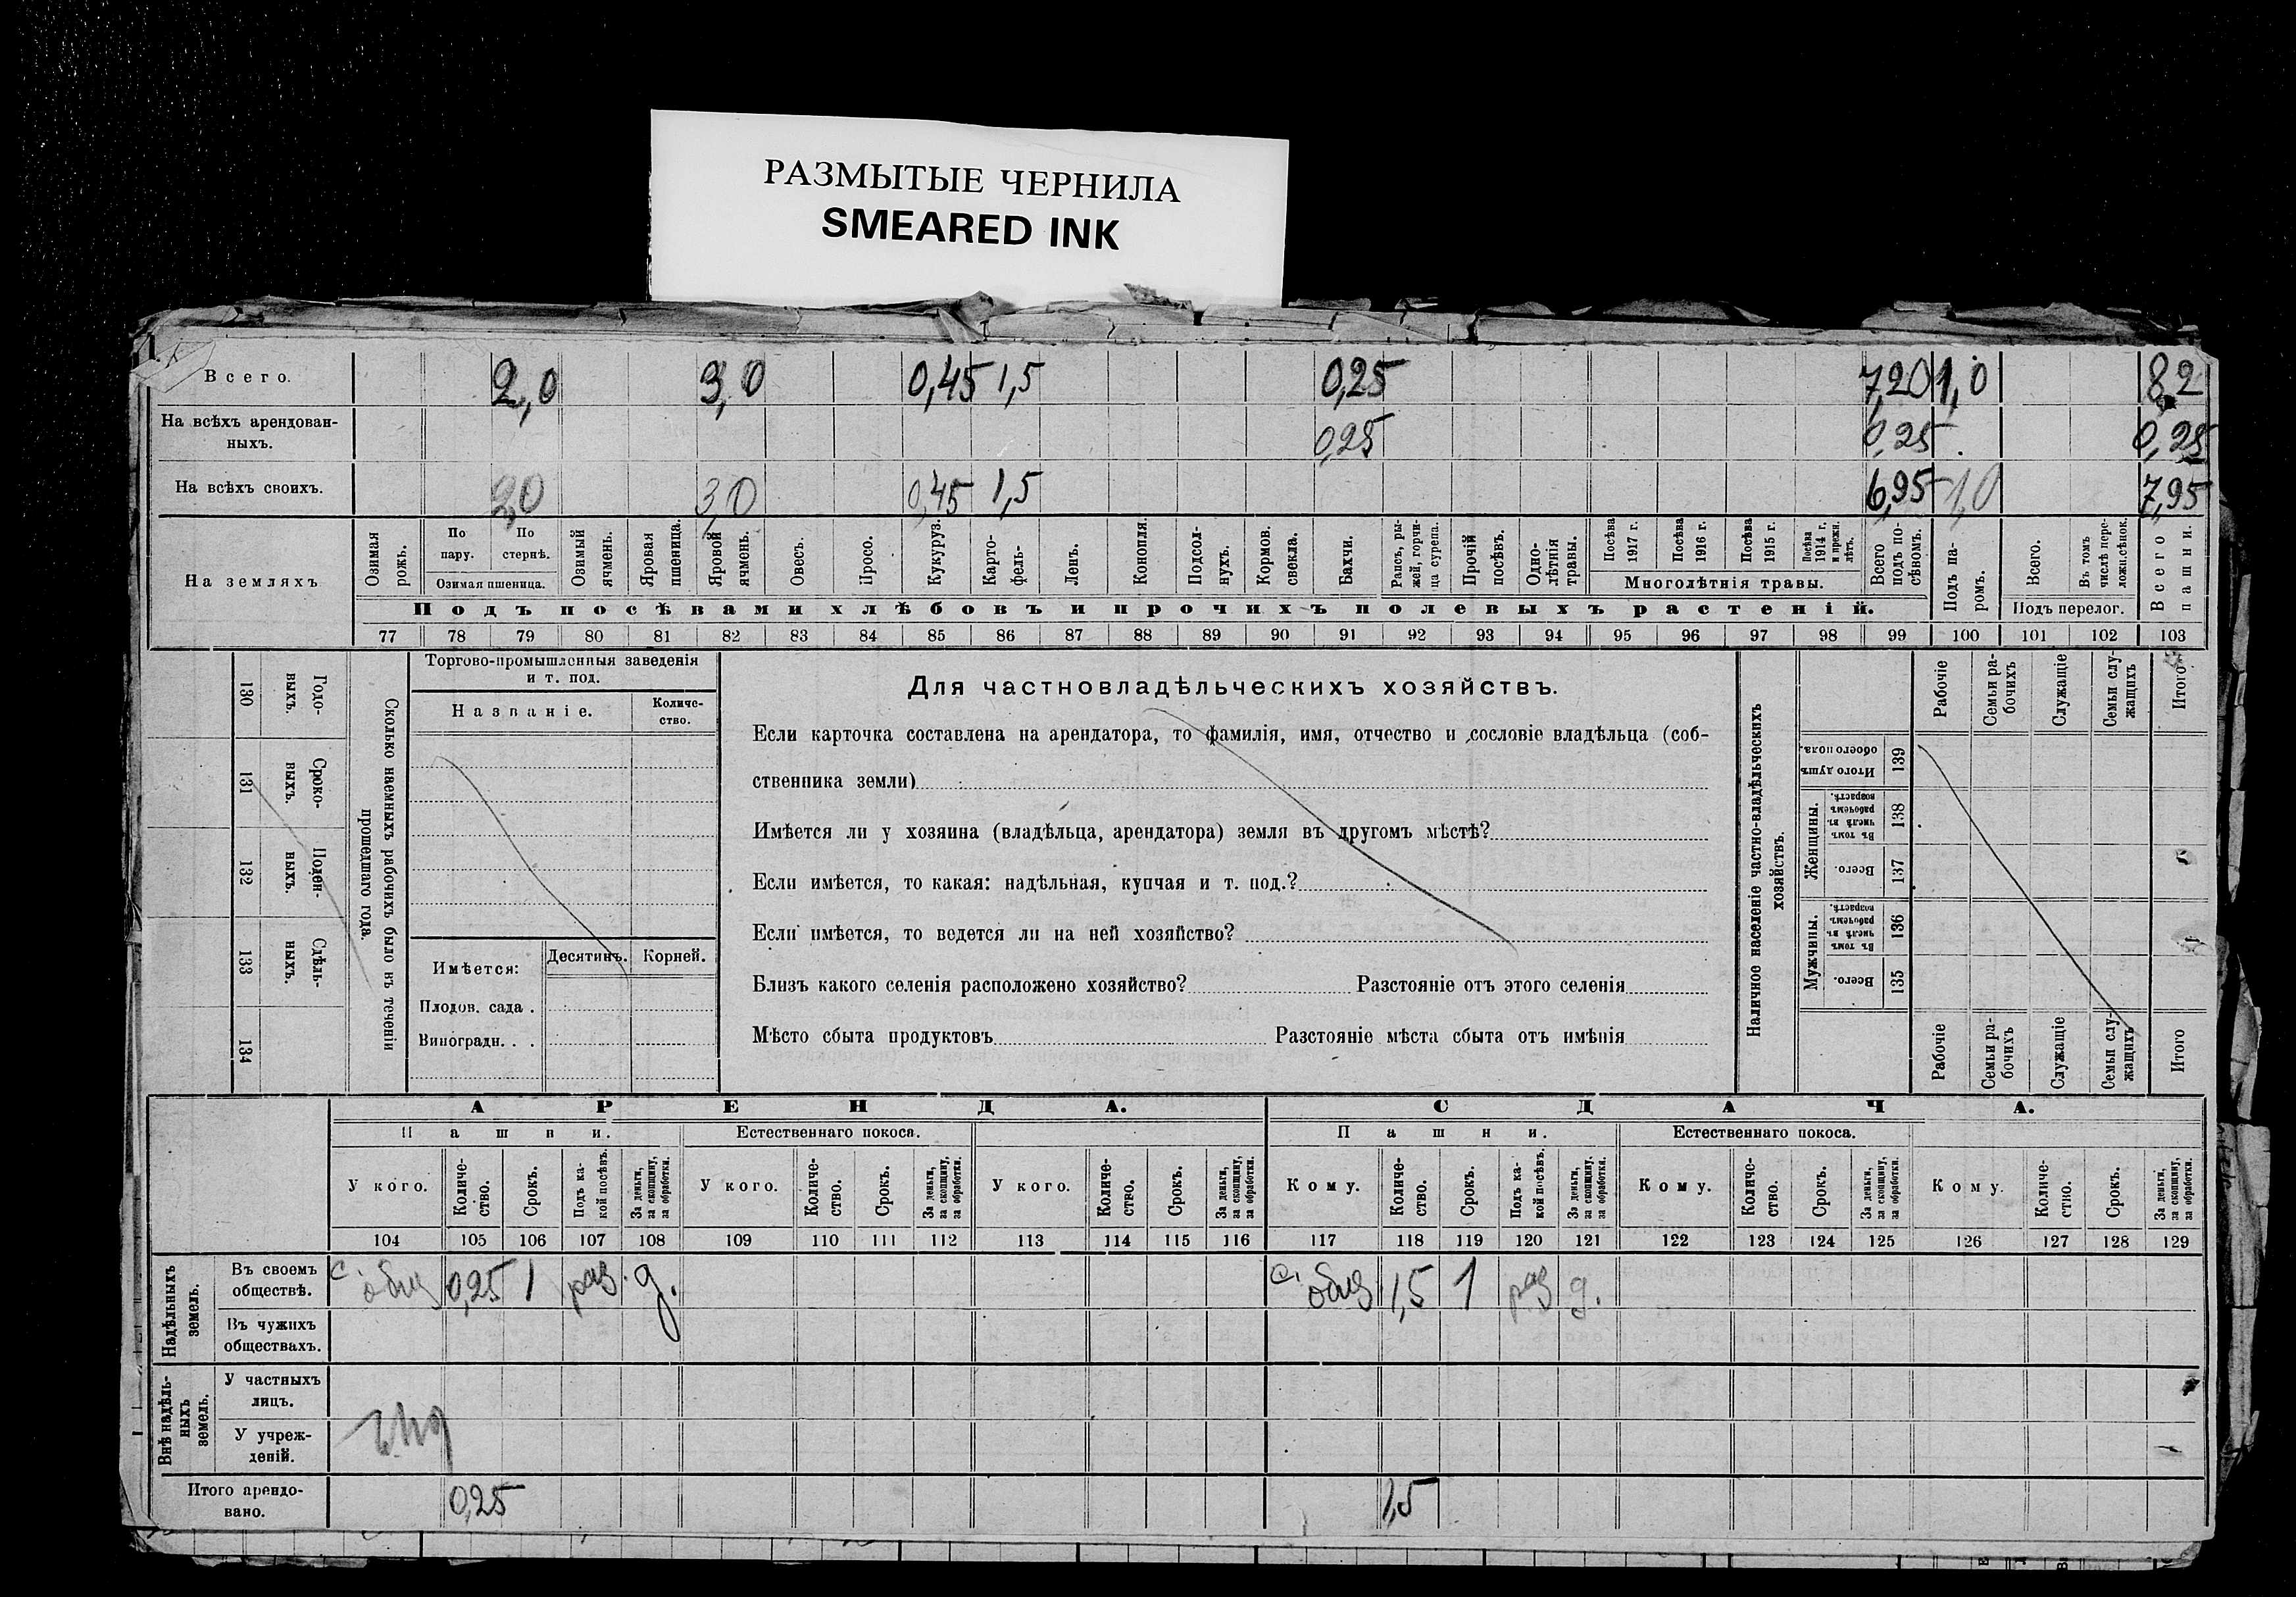 РАЗМЫТЫЕ ЧЕРНИЛА
SMEARED INK
Всего. 2,0 3,0 0,45 1,5 0,25 7,20 1,0 8,2
На всѣхъ арендован-
ныхъ. 0,25 0,25 0,25
На всѣхъ своихъ. 2,0 3,0 0,45 1,5 6,95 1,0 7,95
На земляхъ
Озимая рожь.
По пару.
По стернѣ.
Озимая пшеница.
Озимый ячмень.
Яровая пшеница.
Яровой ячмень.
Овесъ.
Просо.
Кукуруз.
Карто-
фель-
Ленъ.
Конопля.
Подсол-
нухъ.
Кормов. свекла.
Бахчи.
Рапсъ, ры-
жей, горчи-
ца сурепа.
Прочій посѣвъ.
Одно-
лѣтнія травы.
Посѣва 1917 г.
Посѣва 1916 г.
Посѣва 1915 г.
Посѣва 1914 г. и прежн. лѣтъ.
Многолѣтнія травы.
Всего подъ по-
сѣвомъ.
Подъ па-
ромъ.
Всего.
Въ томъ числѣ пере-
ложн.сѣнок.
Подъ перелог.
Всего пашни.
Подъ посѣвами хлѣбовъ и прочихъ полевыхъ растеній.
77 78 79 80 81 82 83 84 85 86 87 88 89 90 91 92 93 94 95 96 97 98 99 100 101 102 103
130 Годо-
выхъ.
131 Сроко-
выхъ.
132 Поден-
ныхъ.
133 Сдѣль-
ныхъ.
134
Сколько наемныхъ рабочихъ было въ теченіи
прошедшаго года.
Торгово-промышленныя заведенія
и т. под.
Названіе.
Количе-
ство.
Имѣется: Десятинъ. Корней.
Плодов. сада .
Виноградн. . .
Для частновладѣльческихъ хозяйствъ.
Если карточка составлена на арендатора, то фамилія, имя, отчество и сословіе владѣльца (соб-
ственника земли)
Имѣется ли у хозяина (владѣльца, арендатора) земля въ другомъ мѣстѣ?
Если имѣется, то какая: надѣльная, купчая и т. под.?
Если имѣется, то ведется ли на ней хозяйство?
Близъ какого селенія расположено хозяйство? Разстояніе отъ этого селенія
Мѣсто сбыта продуктовъ Разстояніе мѣста сбыта отъ имѣнія
Наличное населеніе частно-владѣльческихъ
хозяйствъ.
Рабочіе
Семьи ра-
бочихъ
Служащіе
Семьи слу-
жащихъ
Итого
Итого душъ обоего пола. 139
Женщины.
Въ томъ числѣ въ рабочемъ возрастѣ. 138
Всего. 137
Мужчины.
Въ томъ числѣ въ рабочемъ возрастѣ. 136
Всего. 135
Рабочіе
Семьи ра-
бочихъ
Служащіе
Семьи слу-
жащихъ
Итого
АРЕНДА. СДАЧА.
Пашни. Естественнаго покоса. Пашни. Естественнаго покоса.
У кого.
Количе-
ство.
Срокъ.
Подъ ка-
кой посѣвъ.
За деньги, за скопщину, за обработки.
У кого.
Количе-
ство.
Срокъ.
За деньги, за скопщину, за обработки.
У кого.
Количе-
ство.
Срокъ.
За деньги, за скопщину, за обработки.
Кому.
Количе-
ство.
Срокъ.
Подъ ка-
кой посѣвъ.
За деньги, за скопщину, за обработки.
Кому.
Количе-
ство.
Срокъ.
За деньги, за скопщину, за обработки.
Кому.
Количе-
ство.
Срокъ.
За деньги, за скопщину, за обработки.
104 105 106 107 108 109 110 111 112 113 114 115 116 117 118 119 120 121 122 123 124 125 126 127 128 129
Надѣльныхъ
земель.
Въ своемъ
обществѣ. с. общ 0,25 1 раз. д. с. общ 1,5 1 раз д.
Въ чужихъ
обществахъ.
Внѣ надѣль-
ныхъ
земель.
У частныхъ
лицъ.
У учреж-
деній.
Итого арендо-
вано. 0,25 1,5